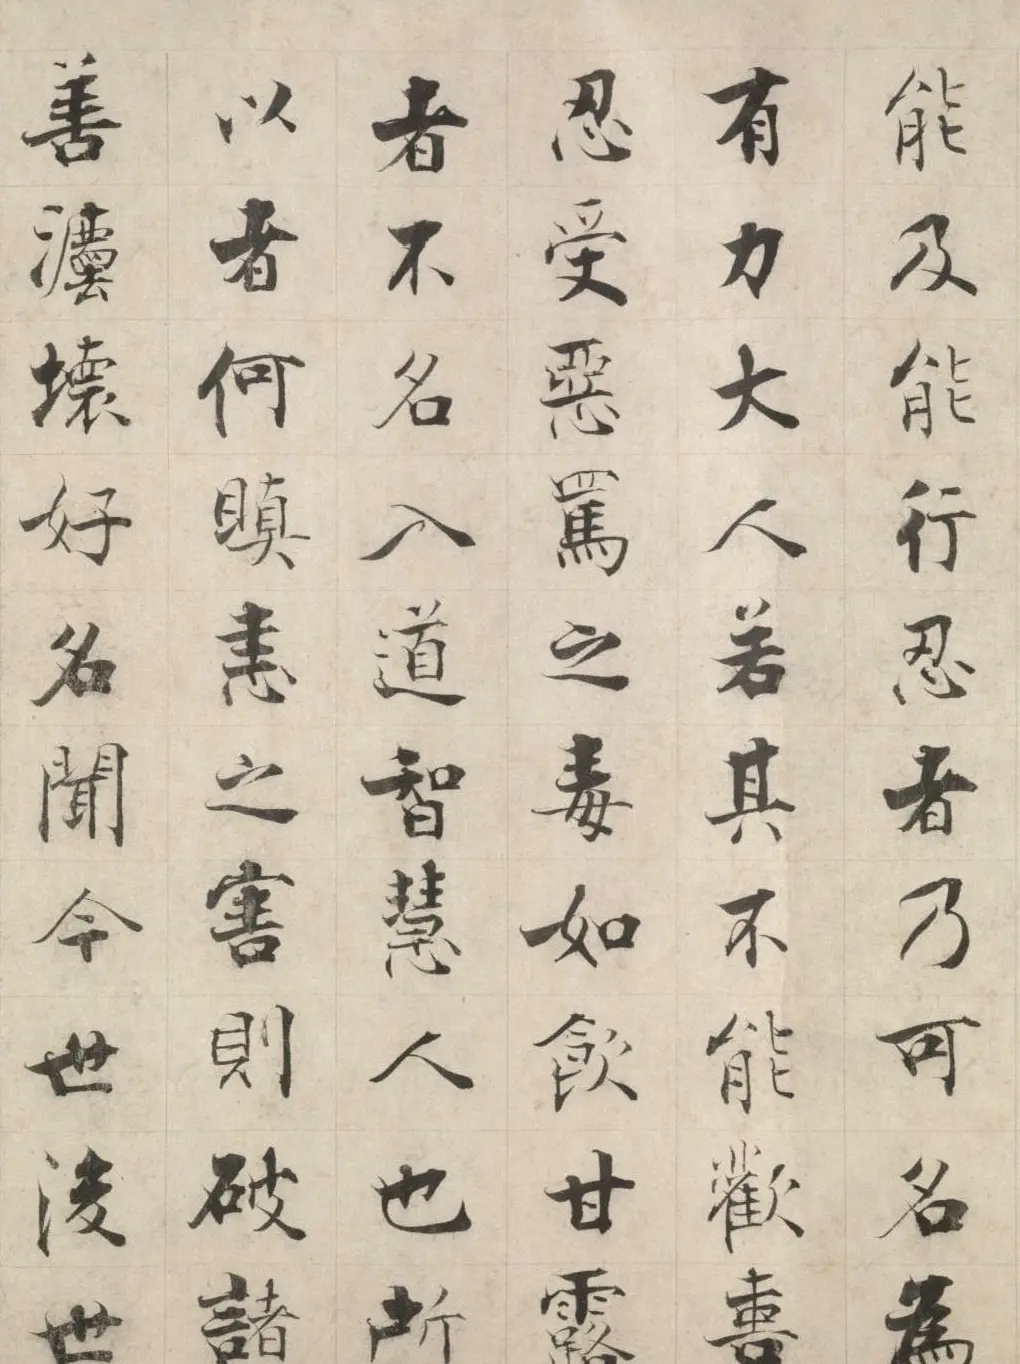 能及能行忍者乃可名為
有力大人若其不能歡喜
忍受惡罵之毒如飲甘露
者不名入道智慧人也所
以者何瞋恚之害則破諸
善法壞好名聞今世後世